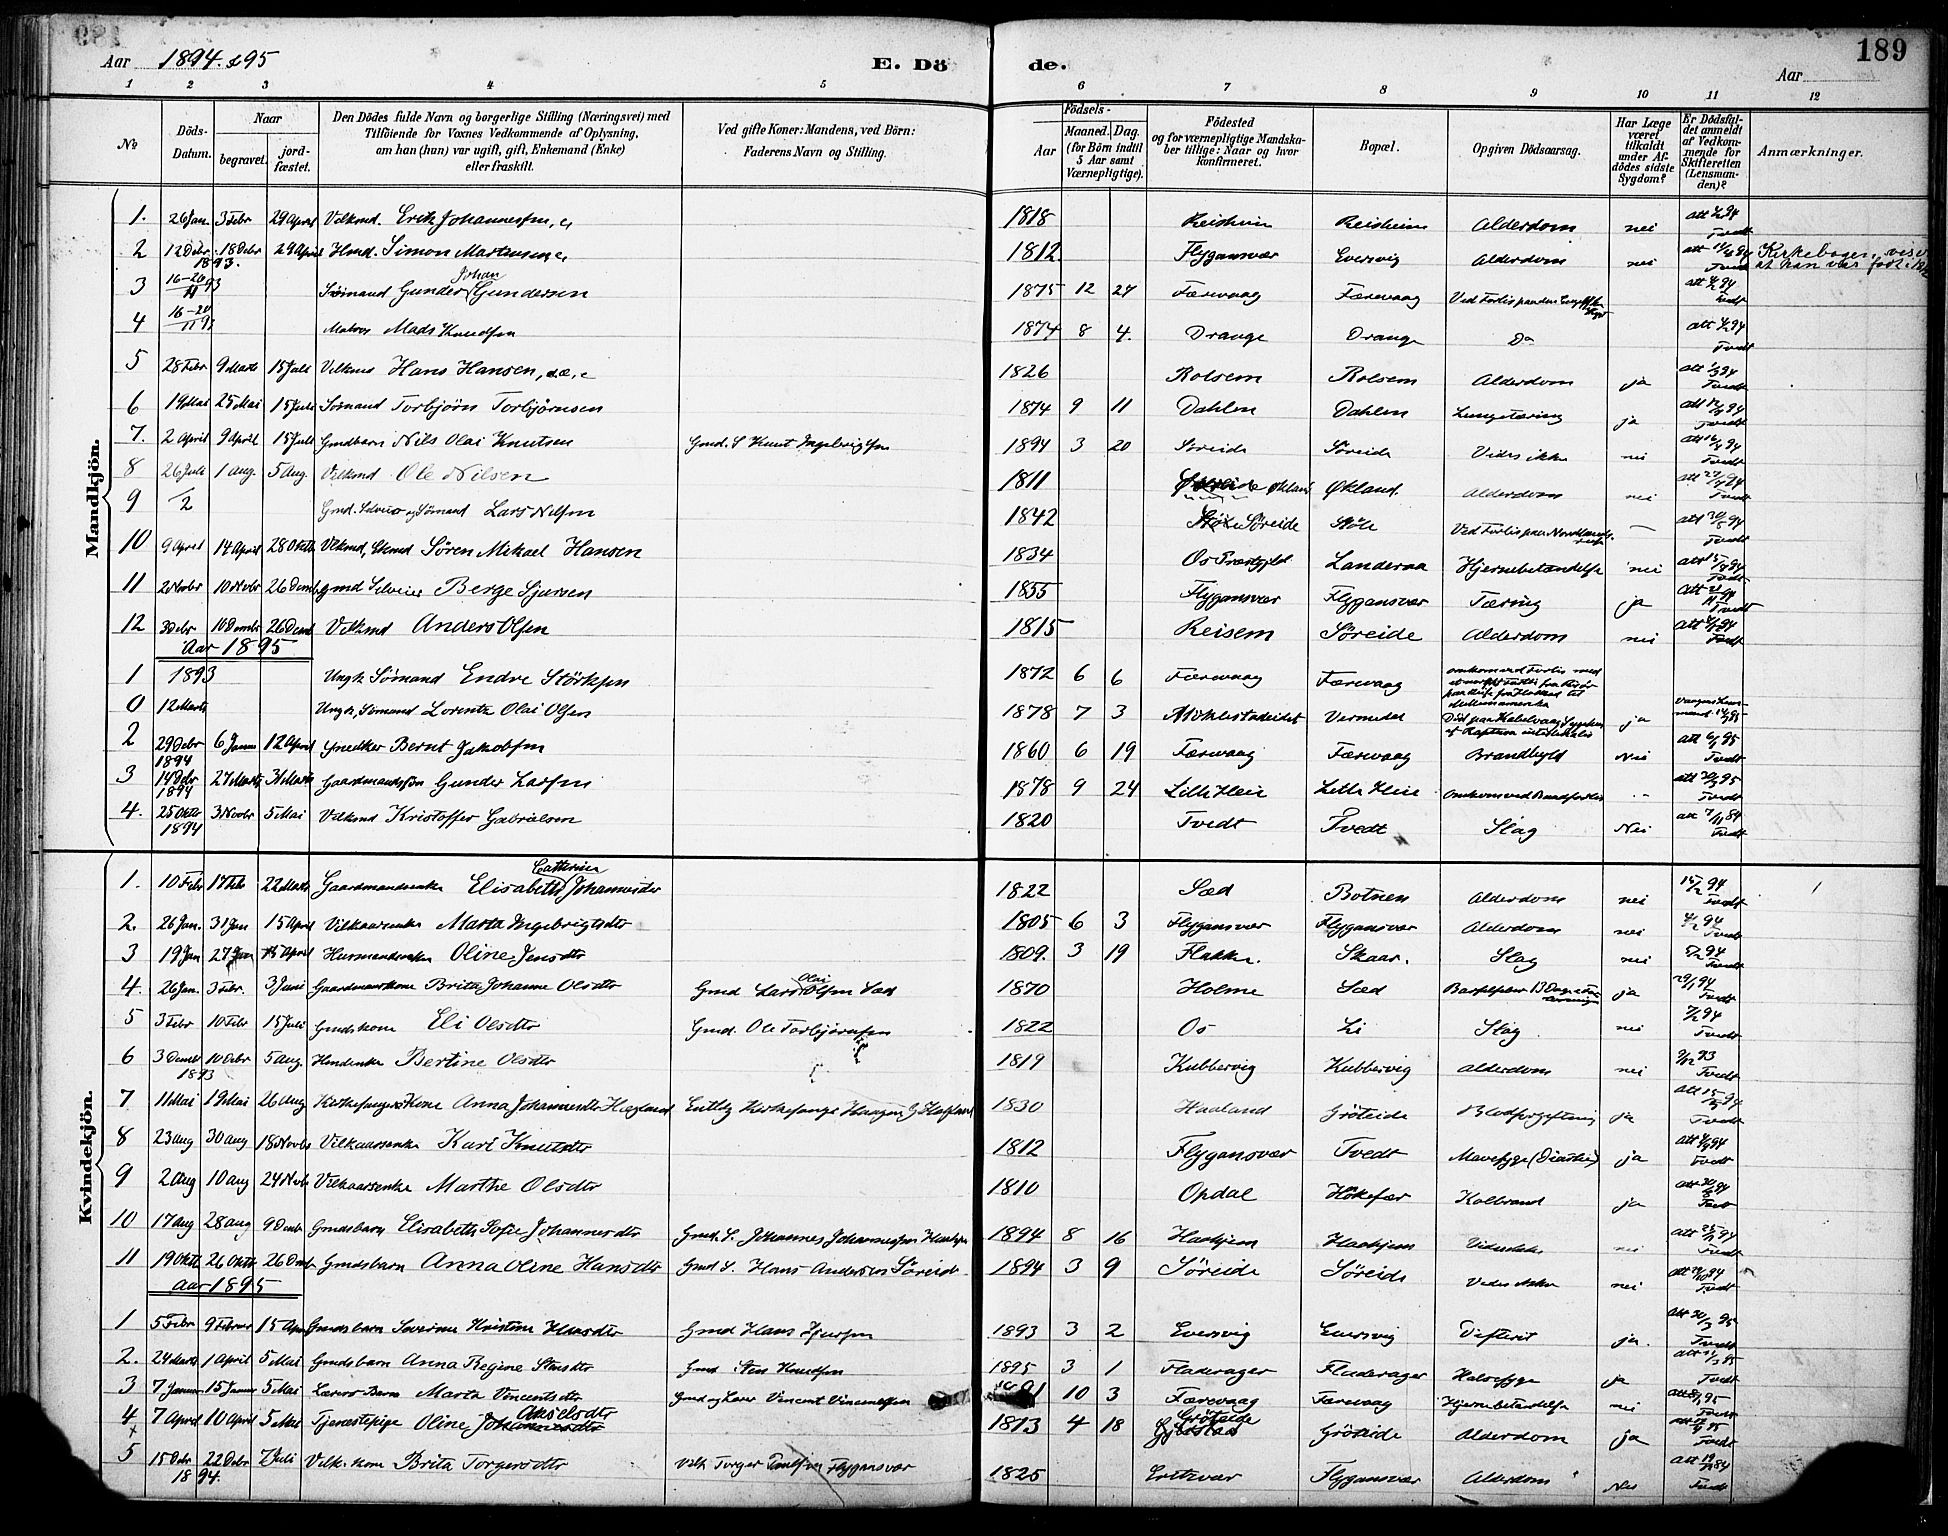 189
Aar 1894. & 95
E. Dö de.
Aar
1 2 3 4 5 6 7 8 9 10 11 12
No
Döds-Datum.
Naar
begravet.
jord-fæstet.
Den Dödes fulde Navn og borgerlige Stilling (Næringsvei) med
Tilföiende for Voxnes Vedkommende af Oplysning,
om han (hun) var ugift, gift, Enkemand (Enke)
eller fraskilt.
Ved gifte Koner: Mandens, ved Börn:
Faderens Navn og Stilling.
Födsels-
Aar
Maaned. Dag.
(for Börn indtil
5 Aar samt
Værnepligtige).
Födested
og for værnepligtige Mandska-
ber tillige: Naar og hvor
konfirmeret.
Bopæl.
Opgiven Dödsaarsag.
Har Læge
været
tilkaldt
under Af-
dödes sidste
Sygdom?
Er Dödsfal-
det anmeldt
af Vedkom-
mende for
Skifteretten
(Lensman-
den)?
Anmærkninger.
Mandkjön.
1. 26 Jan. 3 Febr 29 April Vilkmd. Erik Johannessen, e, 1818 Reisheim Reisheim Alderdom nei att 94 Tvedt
2 12 Debr 1893. 18 Debr 29 April Hmd. Simon Martensen e, 1812 Flygansvær Eversvig Alderdom nei att 94 Tvedt Kirkebogen viser at han var født i
3 16-20 93 Sømand Gunder Johan Gundersen 1875 12 24 Færevaag Færevaag Ved Forlis paa den Tvedt
4 16-20 Matros Mads Knudsen 1874 8 4. Drange Drange Do att 94 Tvedt
5 28 Febr 9 Marts 15 Juli Vilkmd Hans Hansen, e 1826 Rolsem Rolsem Alderdom ja att 94 Tvedt
6 19 Mai 25 Mai 15 Juli Sømand Torbjørn Torbjørnsen 1874 9 11 Dahlen Dahlen Lungetæring ja att 94 Tvedt
7. 2 April 9 April 15 Juli Gmdbarn Nils Olai Knutsen Gmd. S Knut Ingebrigtsen 1894 3 20 Søreide Søreide Vides ikke nei att 94 Tvedt
8 26 Juli 1 Aug. 5 Aug. Vilkmd Ole Nilsen 1811 Økland Økland. Alderdom nei att 94 Tvedt
9 /2 Gmd. Selveier og Sømand Lars Nilsen 1842 Søreide Støle Ved Forlis paa — att 94 Tvedt
10 9 April 14 April 28 Oktb Vilkmd, Søren Mikael Hansen 1834 Os Præstgjld Landeraa Hjernebetændelse nei att 94 Tvedt
11 2 Novbr 10 Novbr 26 Decmb gmd Selveier Berge Sjursen 1855 Flygansvær Flygansvær Tæring ja att 94 Tvedt
12 3 Debr 10 Decmbr 26 Decmb Vilkmd Anders Olsen 1815 Reisem Søreide Alderdom nei att 94 Tvedt
Aar 1895
1 1893 Ungk Sømand Endre Størksen 1872 6 6 Færevaag Færevaag
0 12 Marts Ungk, Sømand Lorentz Olai Olsen 1878 7 3 Vermedal ja
2 29 Debr 1894 6 Januar 12 April Snedker Bernt Jakobsen 1860 6 19 Færevaag Færevaag Brandbyld Nei att 95 Tvedt
3 14 Debr 1894 27 Marts 31 Marts Gaardmandssøn Gunder Larsen 1878 9 24 Lille Heie Lille Heie Omkom ved Baadforlis att 95 Tvedt
4. 25 Oktbr 1894 3 Novbr 5 Mai Vilkmd Kristoffer Gabrielsen 1820 Tvedt Tvedt Slag Nei att 84 Tvedt
Kvindekjön.
1. 10 Febr 17 Febr 22 Marts Gaardmandsenke Elisabeth Cathrina Johannesdtr 1822 Sæd Botnen Alderdom nei 15/2 94 Tvedt
2. 26 Jan. 31 Jan 15 April Vilkaarsenke Marta Ingebrigtsdtr 1805 6 3 Flygansvær Flygansvær Alderdom nei 94 Tvedt
3 19 Jan 27 Jan 15 April Husmandsenke Oline Jensdtr 1809. 3 19 Flakke. Skaar. Slag nei 94 Tvedt
4. 26 Jan. 3 Febr. 3 Juni Gaardmandskone Brita Johanne Olsdtr Gmd Lars Olai Olsen Sæd 1870 Holme Sæd Barselfeber 13 Dage ja 94 Tvedt
5 3 Febr 10 Febr 15 Juli Gmdskone Eli Olsdtr Gmd. Ole Torbjørnsen 1822 Os Li Slag nei 94 Tvedt
6 3 Decmb 1893 10 Debr 5 Aug. Hmdenke Bertine Olsdtr 1819 Kubbervig Kubbervig Alderdom nei 93 Tvedt
7 11 Mai 19 Mai 26 Aug Kirkesangers Kone Anna Johannesdtr Haaland 1830 Haaland Grøteide Blodforgiftning ja att 94 Tvedt
8 23 Aug 30 Aug 18 Novbr Vilkaarsenke Kari Knutsdtr 1812 Flygansvær Tvedt Mavesyge ja att 94 Tvedt
9 2 Aug 10 Aug 24 Novbr Vilkaarsenke Marthe Olsdtr 1810 Opdal Hökefær Kolbrand ja att 94
10 17 Aug 28 Aug 9 Decmbr Gmdsbarn Elisabeth Sofie Johannesdtr Gmd. S. Johannes Johannessen 1894 8 16 Haakjem Haakjem Vides ikke nei att 94 Tvedt
11 19 Oktb 26 Oktb 26 Decmbr Gmdsbarn Anna Oline Hansdtr Gmd S. Hans Andersen Søreide. 1894 3 9 Søreide Søreide Vides ikke nei att 94 Tvedt
Aar 1895
1 5 Febr 9 Februar 15 April Gmdsbarn Severine Kristine Hansdtr Gmd Hans Sjursen 1893 3 2 Eversvig Eversvig Difterit ja. att 95 Tvedt
2. 24 Marts 1 April 5 Mai Gmdsbarn Anna Regine Stensdtr Gmd Sten Knudsen 1895 3 1 Fladerager Fluderager Halssyge ja att 95 Tvedt
3 7 Januar 15 Januar 5 Mai Lærers Barn Marta Vincentsdtr Gmd og Lærer Vincent Vincentsen 10 3 Færevaag Færevaag Hjernebetændelse nei 95 Tvedt
4 7 April 10 April 5 Mai Tjenestepige Oline Akselsdtr Johannesdtr 1813 4 18 Grøteide Grøteide Alderdom ja 95 Tvedt
5 15 Debr 1894. 22 Debr 7 Juli Vilk. kone Brita Torgersdtr Vilk Torger Flygansvær 1825 Flygansvær Alderdom Nei att 84 Tvedt